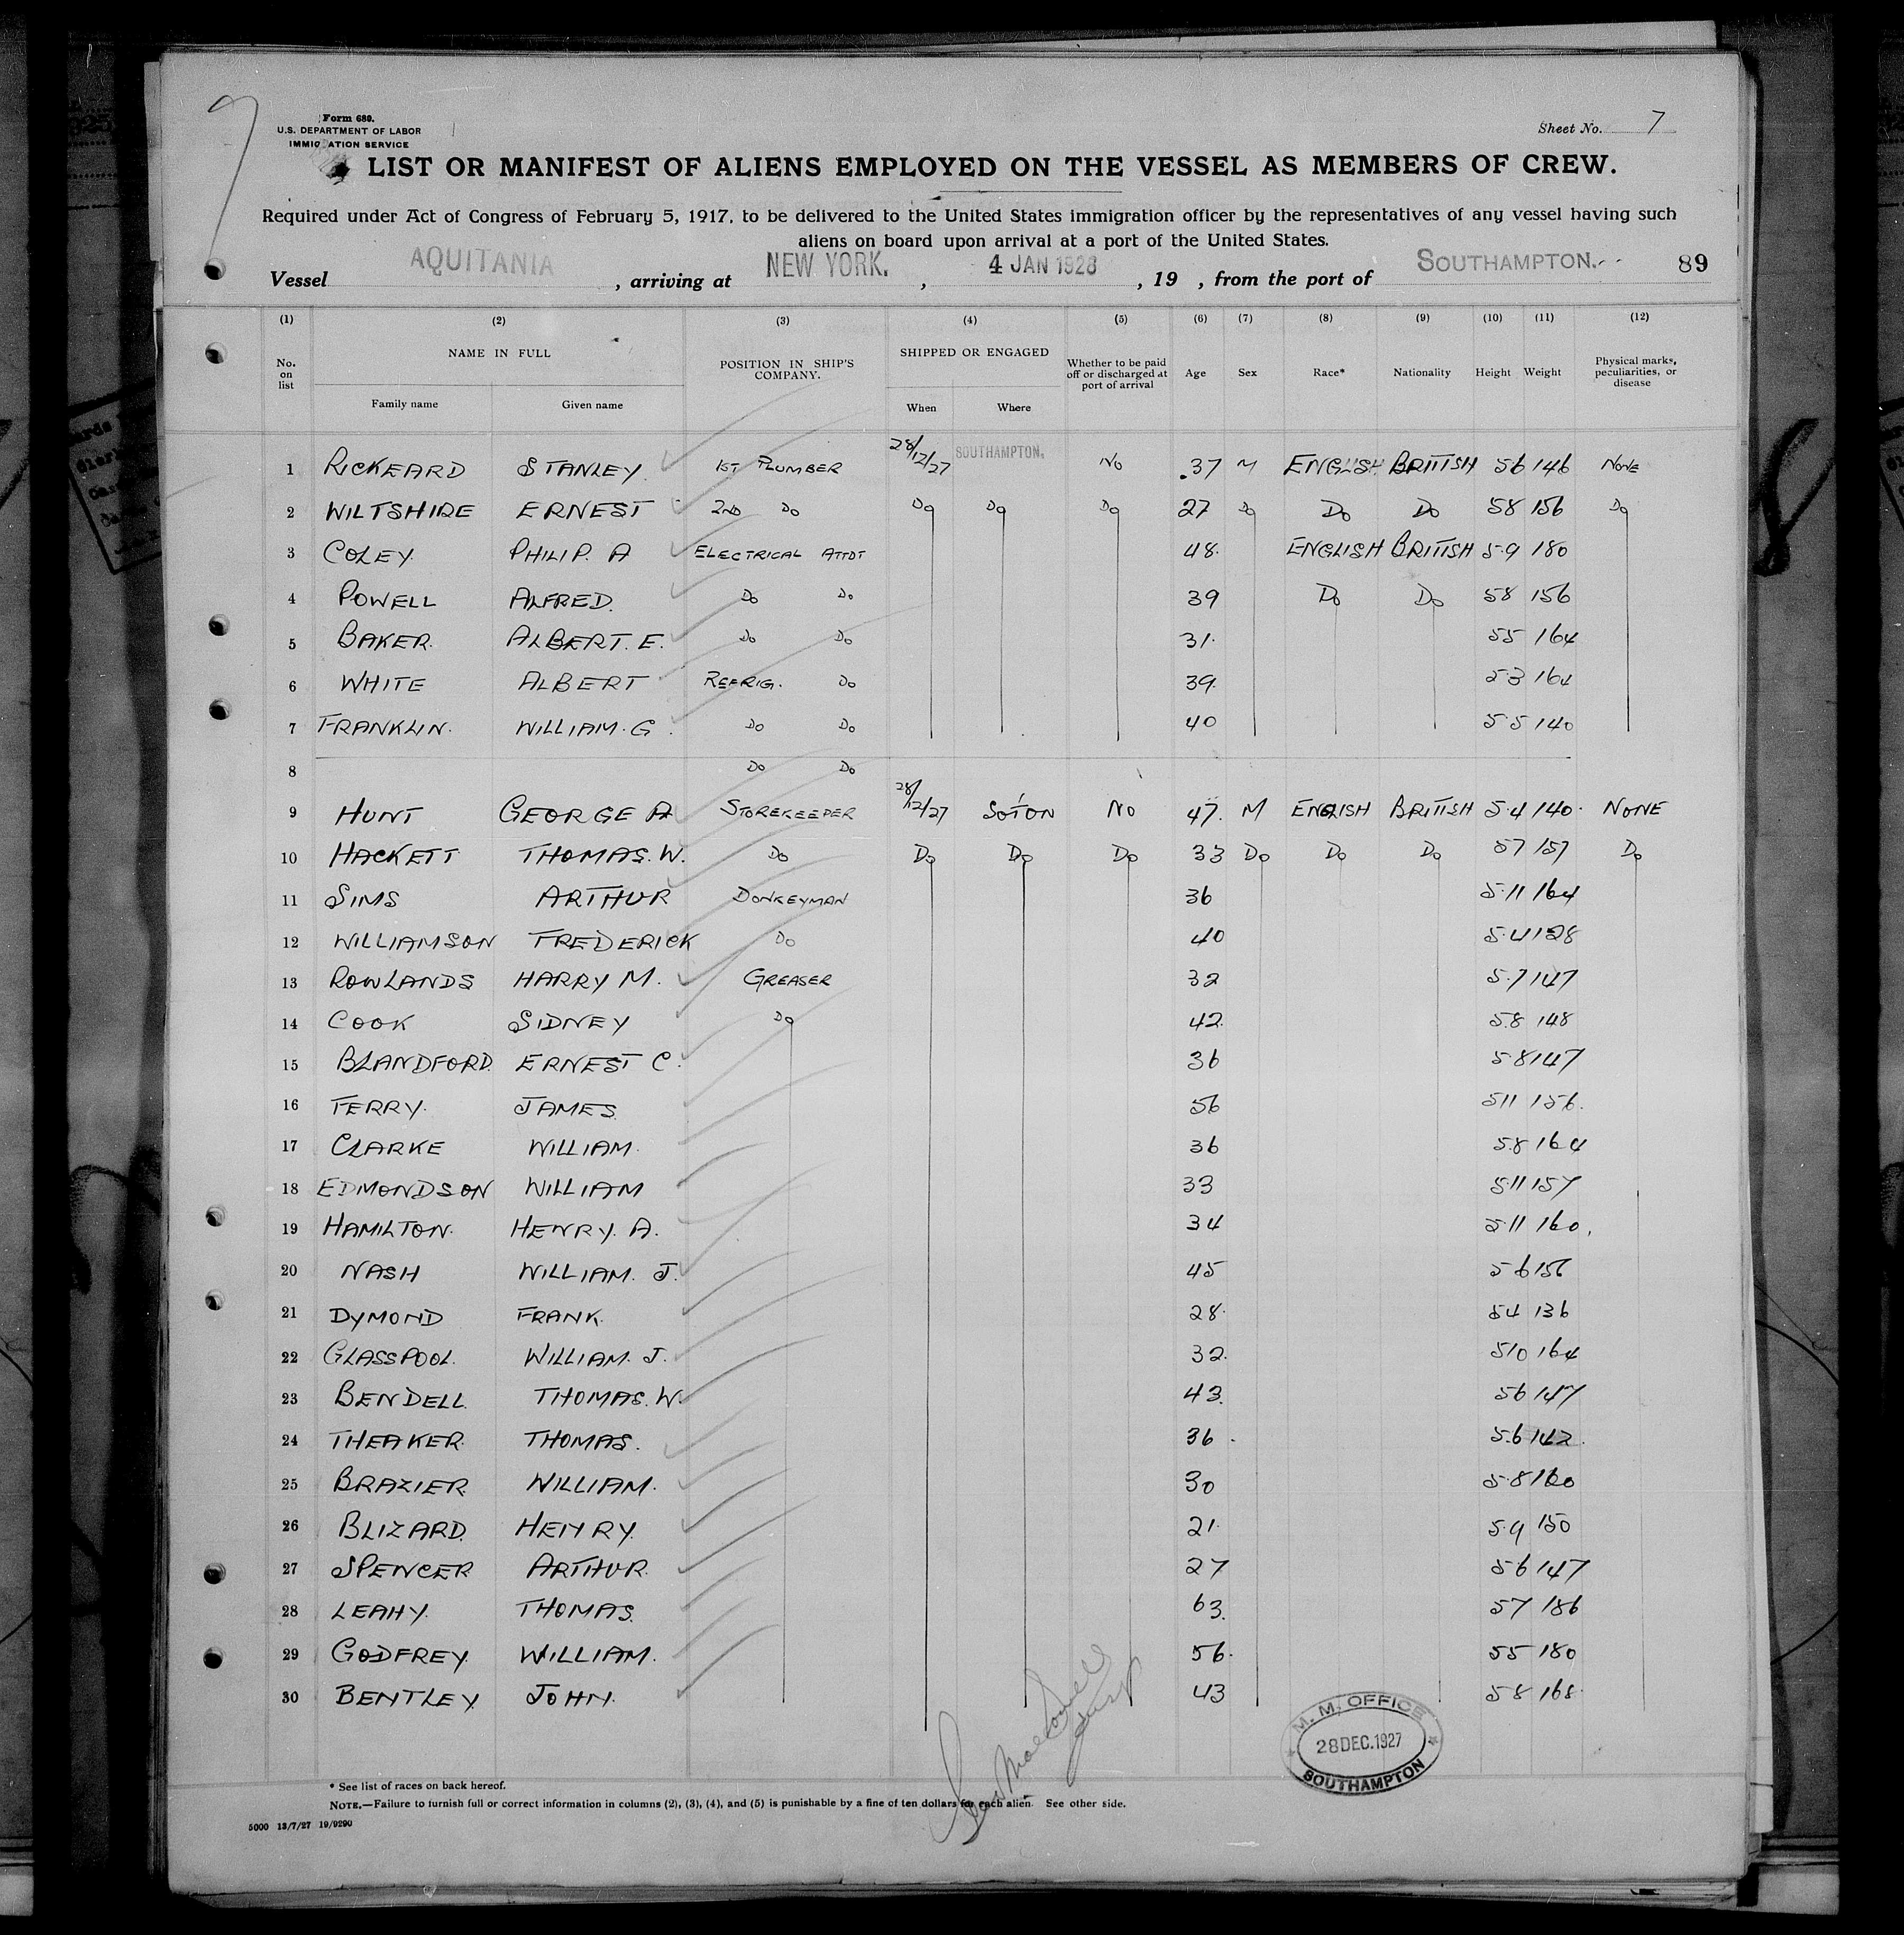 7
Form 680.
U.S. DEPARTMENT OF LABOR
IMMIGRATION SERVICE
Sheet No. 7
LIST OR MANIFEST OF ALIENS EMPLOYED ON THE VESSEL AS MEMBERS OF CREW.
Required under Act of Congress of February 5, 1917, to be delivered to the United States immigration officer by the representatives of any vessel having such
aliens on board upon arrival at a port of the United States.
Vessel AQUITANIA, arriving at NEW YORK., 4 JAN 1928, 19 , from the port of SOUTHAMPTON. 89
(1) (2) (3) (4) (5) (6) (7) (8) (9) (10) (11) (12)
No. on list NAME IN FULL POSITION IN SHIP'S COMPANY. SHIPPED OR ENGAGED Whether to be paid off or discharged at port of arrival Age Sex Race* Nationality Height Weight Physical marks, peculiarities, or disease
Family name Given name When Where
1 RICKEARD STANLEY 1ST PLUMBER 28/12/27 SOUTHAMPTON. NO 37 M ENGLISH BRITISH 56 146 NONE
2 WILTSHIRE ERNEST 2ND DO DO DO DO 27 DO DO DO 58 156 DO
3 COLEY. PHILIP. A ELECTRICAL ATTDT 48. ENGLISH BRITISH 5.9 180
4 POWELL ALFRED. DO DO 39 DO DO 58 156
5 BAKER. ALBERT. E. DO DO 31. 55 164
6 WHITE ALBERT REFRIG. DO 39. 53 164
7 FRANKLIN. WILLIAM. G. DO DO 40 5.5 140
8 DO DO
9 HUNT GEORGE A STOREKEEPER 28/12/27 SO'TON NO 47. M ENGLISH BRITISH 5.4 140. NONE
10 HACKETT THOMAS. W. DO DO DO DO 33 DO DO DO 57 157 DO
11 SIMS ARTHUR DONKEYMAN 36 5.11 164
12 WILLIAMSON FREDERICK DO 40 5.4 128
13 ROWLANDS HARRY M. GREASER 32 5.7 147
14 COOK SIDNEY DO 42. 5.8 148
15 BLANDFORD. ERNEST C. 36 5.8 147
16 TERRY. JAMES. 56 511 156.
17 CLARKE WILLIAM. 36 5.8 164
18 EDMONDSON WILLIAM 33 5.11 157
19 HAMILTON. HENRY. A. 34 5.11 160.
20 NASH WILLIAM. J. 45 5.6 156
21 DYMOND FRANK. 28. 54 136
22 GLASSPOOL. WILLIAM. J. 32. 510 164
23 BENDELL. THOMAS. W. 43. 56 147
24 THEAKER. THOMAS. 36. 5.6 142.
25 BRAZIER. WILLIAM. 30 5.8 160
26 BLIZARD. HENRY. 21. 5.9 150
27 SPENCER ARTHUR. 27 56 147
28 LEAHY. THOMAS. 63. 57 186
29 GODFREY. WILLIAM. 56. 55 180
30 BENTLEY. JOHN. 43 58 168.
M. M. OFFICE
28 DEC. 1927
SOUTHAMPTON
* See list of races on back hereof.
NOTE.—Failure to furnish full or correct information in columns (2), (3), (4), and (5) is punishable by a fine of ten dollars for each alien. See other side.
5000 13/7/27 19/9290